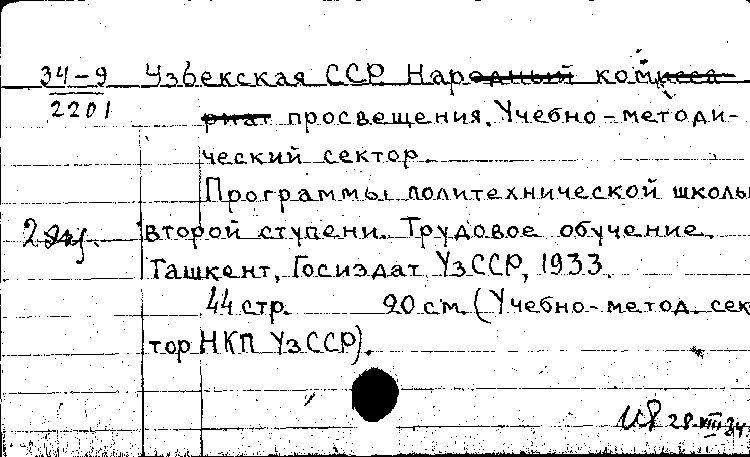 34-9 Узбекская ССР. Народный комисса-
2201 риат просвещения. Учебно-методи-
ческий сектор.
Программы политехнической школы
2 экз. второй ступени. Трудовое обучение.
Ташкент, Госиздат УзССР, 1933.
44 стр. 20 см. (Учебно-метод. сек
тор НКП УзССР).
28.VIII 34